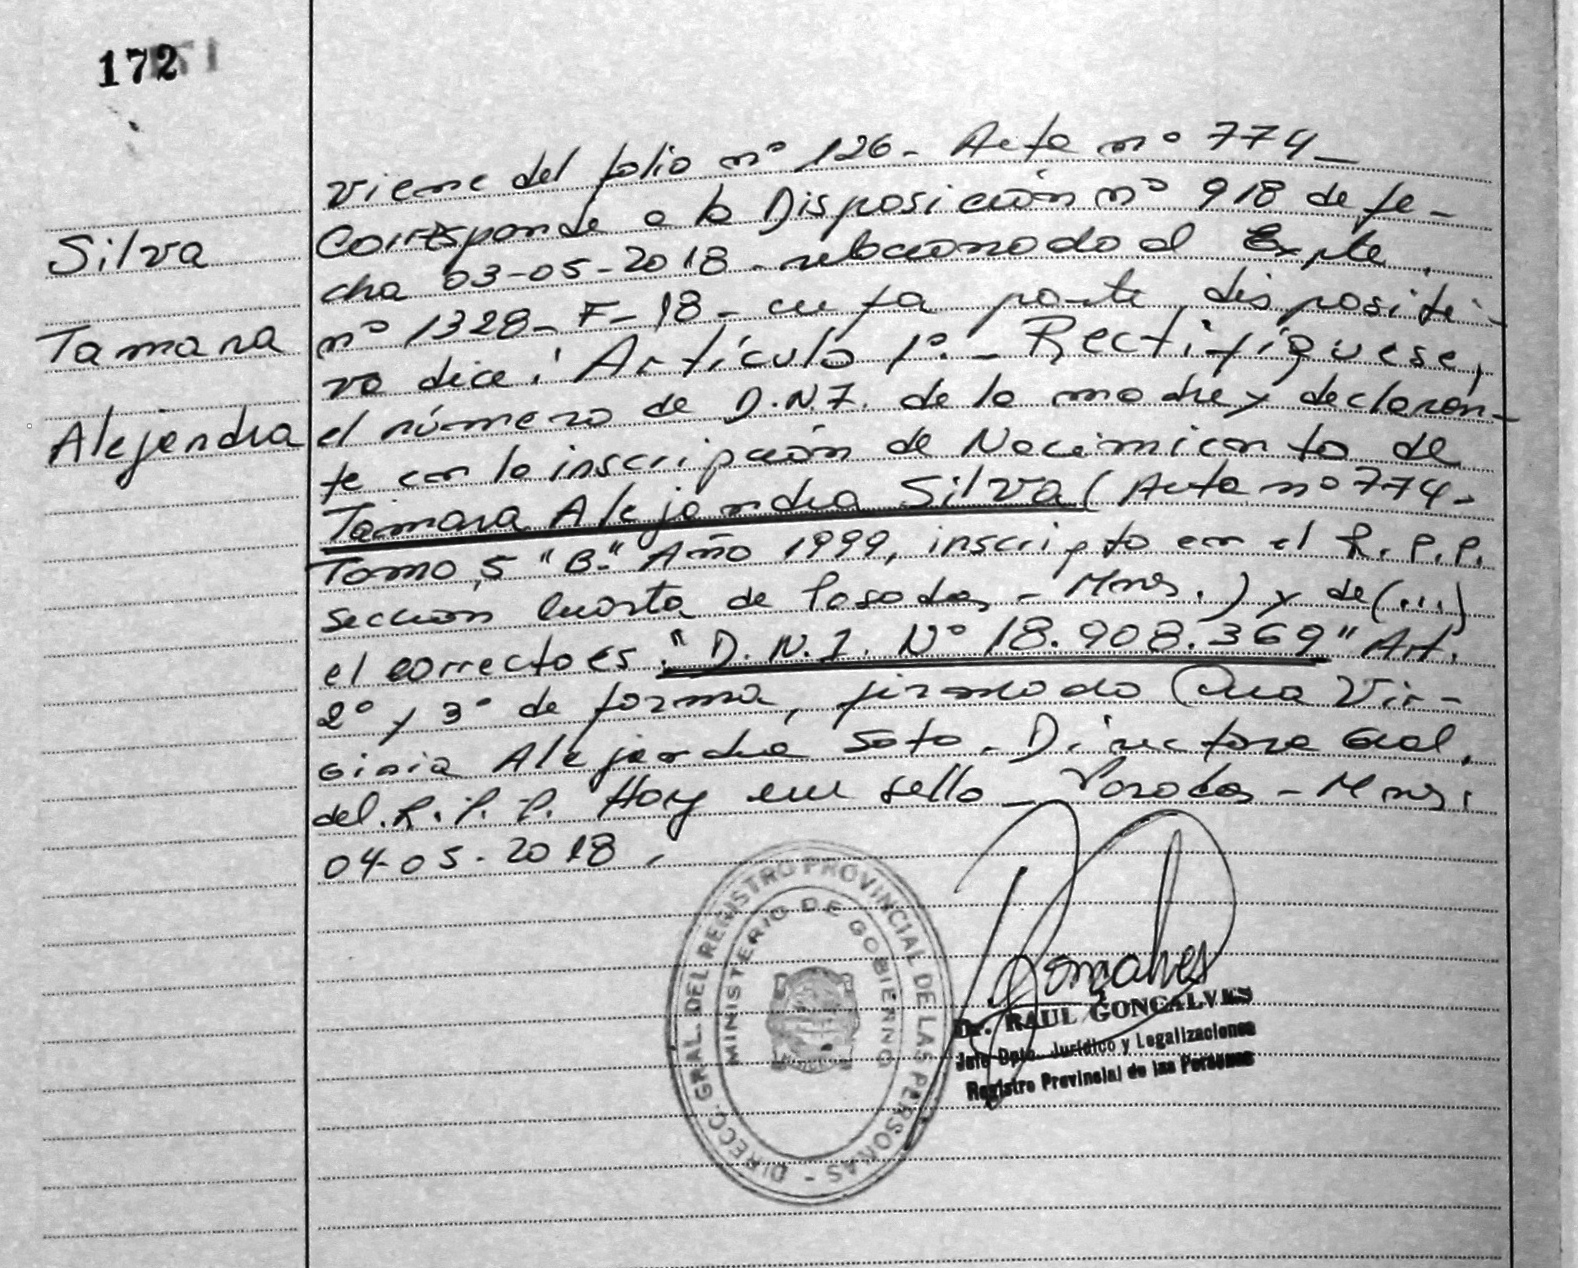 172
Silva
Tamara
Alejandra
Viene del folio nº 126 - Acta nº 774 -
Corresponde a la Disposición nº 918 de fe-
cha 03-05-2018 - relacionado al Expte.
nº 1328 - F - 18 - cuya parte dispositi-
va dice: Artículo 1º. - Rectifíquese,
el número de D.N.I. de la madre y declaran-
te en la inscripción de Nacimiento de
Tamara Alejandra Silva (Acta nº 774 -
Tomo 5 "B". Año 1999, inscripto en el R.P.P.
sección Cuarta de Posadas - Mnes.) y de (...)
el correcto es: "D.N.I. Nº 18.908.369" Art.
2º y 3º de forma, firmado Ana Vir-
ginia Alejandra Soto - Directora Gral.
del R.P.P. Hay un sello - Posadas - Mnes.
04-05-2018.
DIRECC. GRAL. DEL REGISTRO PROVINCIAL DE LAS PERSONAS -
MINISTERIO DE GOBIERNO
Gonçalves
Dr. RAUL GONCALVES
Jefe Dpto. Jurídico y Legalizaciones
Registro Provincial de las Personas